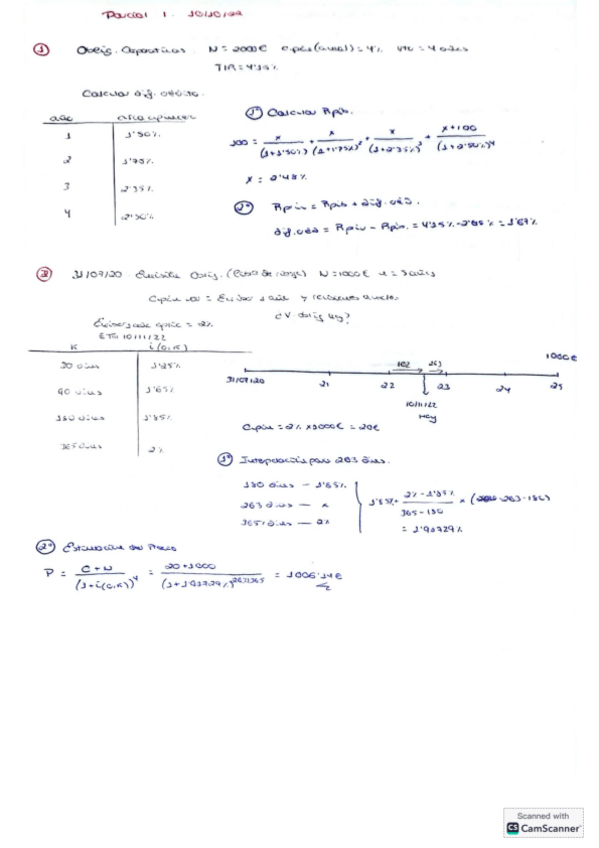 Parcial 1. 10/10/22
① Oblig. Corporativas. N = 2000€ cupón (anual) = 4% vto = 4 años
TIR = 4'15%
Calcular dif. crédito.
año
1 1'50%
2 1'75%
3 2'35%
4 2'50%
1º Calcular Rpib.
100 = x/(1+1'50%) + x/(1+1'75%)² + x/(1+2'35%)³ + x+100/(1+2'50%)⁴
x = 2'48%
2º Rpiv = Rpib + dif. créd.
dif. créd = Rpiv - Rpib = 4'15% - 2'48% = 1'67%
② 31/07/20 Emisión Oblig. N = 1000€ n = 5 años
Cupón
Euribor año = 2%
ETTI 10/11/22
K i(0,K)
30 días 1'25%
90 días 1'65%
180 días 1'85%
365 días 2%
1000€
102 263
31/07/20 21 22 23 24 25
10/11/22
Hoy
Cupón = 2% x 1000€ = 20€
1º Interpolación para 263 días.
180 días – 1'85%
263 días – x
365 días – 2%
1'85% + 2% - 1'85%/365 - 180 x (263 - 180)
= 1'91729%
2º Estimación del Precio
P = C+N/(1+i(0,K))ᴷ = 20+1000/(1+1'91729%)^263/365 = 1006'14€
Scanned with
CS CamScanner